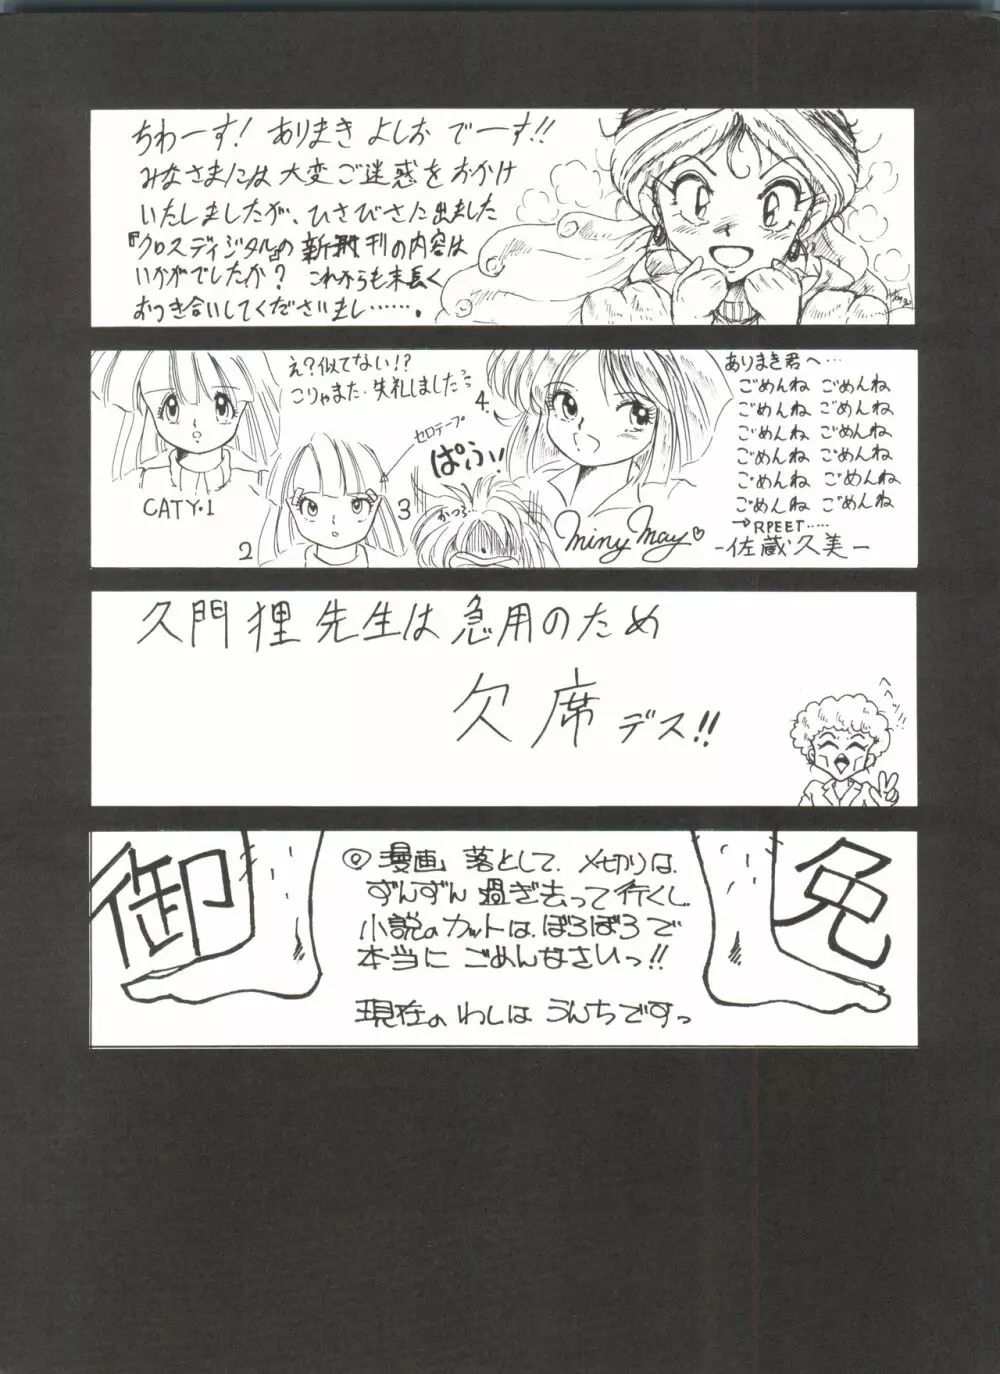 ちわーす! ありまき よしお でーす!!
みなさまには 大変ご迷惑をおかけ
いたしましたが、ひさびさに出ました
『クロスディジタル』の 新刊の内容は
いかがでしたか? これからも末長く
おつき合いしてくださいまし……。
え?似てない!?
こりゃまた、失礼しましたっ
CATY・1
2
セロテープ
3
ぱふ!
かつら
4.
miny May♡
ありまき君へ…
ごめんね ごめんね
ごめんね ごめんね
ごめんね ごめんね
ごめんね ごめんね
ごめんね ごめんね
ごめんね ごめんね
→RPEET.....
-佐蔵久美-
久門狸先生は急用のため
欠席デス!!
御
◎漫画 落として、〆切りは、
ずんずん過ぎ去って行くし
小説のカットは、ぼろぼろで
本当に ごめんなさいっ!!
現在の わしは うんちですっ
免